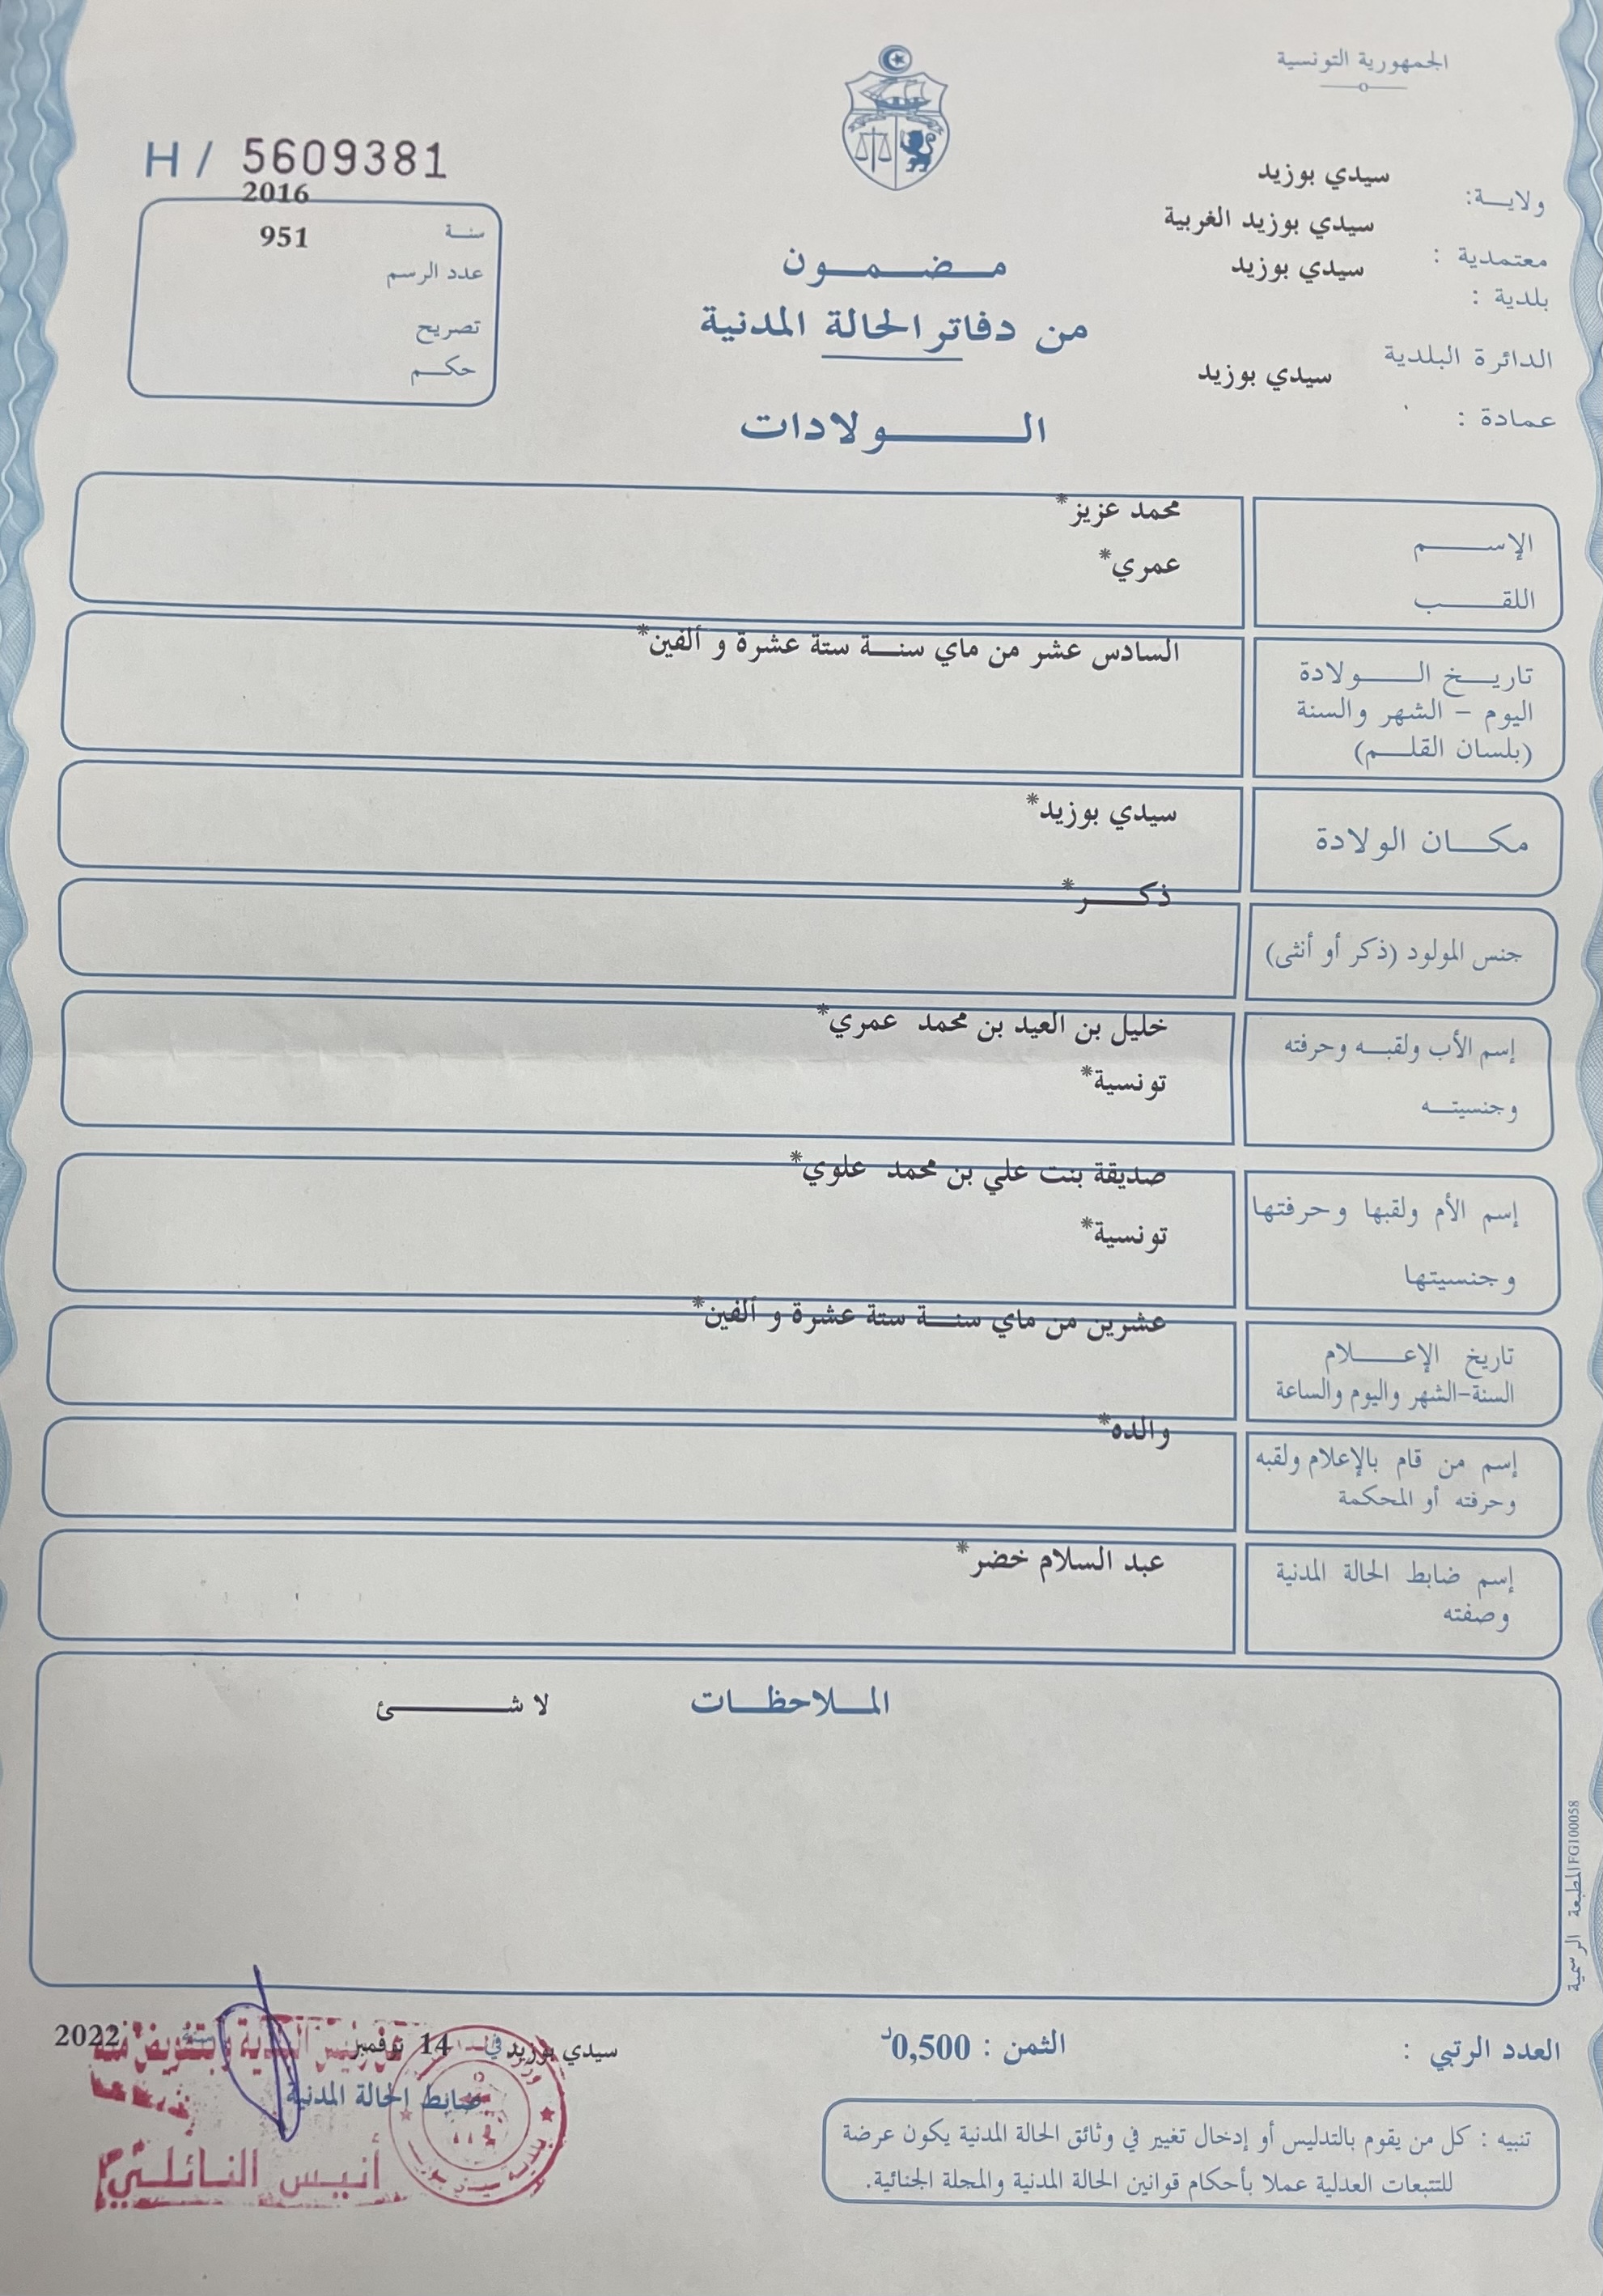 الجمهورية التونسية
ولايـــة: سيدي بوزيد
معتمدية : سيدي بوزيد الغربية
بلدية : سيدي بوزيد
الدائرة البلدية سيدي بوزيد
عمادة :
H / 5609381
سنـة 2016
عدد الرسم 951
تصريح
حكـــم
مـــضـــمـــون
من دفاتر الحالة المدنية
الـــــولادات
الإســـــم محمد عزيز*
اللقـــــب عمري*
تاريـــخ الـــــولادة
اليوم – الشهر والسنة
(بلسان القلـــم)
السادس عشر من ماي سنـــة ستة عشرة و ألفين*
مكـــان الولادة سيدي بوزيد*
جنس المولود (ذكر أو أنثى) ذكـــــر*
إسم الأب ولقبـــه وحرفته خليل بن العيد بن محمد عمري*
وجنسيتـــه تونسية*
إسم الأم ولقبها وحرفتها صديقة بنت علي بن محمد علوي*
وجنسيتها تونسية*
تاريخ الإعـــــلام
السنة-الشهر واليوم والساعة
عشرين من ماي سنـــة ستة عشرة و ألفين*
إسم من قام بالإعلام ولقبه
وحرفته أو المحكمة
والده*
إسم ضابط الحالة المدنية
وصفته
عبد السلام خضر*
المـــلاحظـــات لا شـــــــئ
المطبعة الرسمية FG100058
العدد الرتبي :
الثمن : 0,500د
سيدي بوزيد في 14 نوفمبر سنة 2022
ضابط الحالة المدنية
عن رئيس البلدية وبتفويض منه
أنيس النائلي
بلدية سيدي بوزيد
تنبيه : كل من يقوم بالتدليس أو إدخال تغيير في وثائق الحالة المدنية يكون عرضة
للتتبعات العدلية عملا بأحكام قوانين الحالة المدنية والمجلة الجنائية.